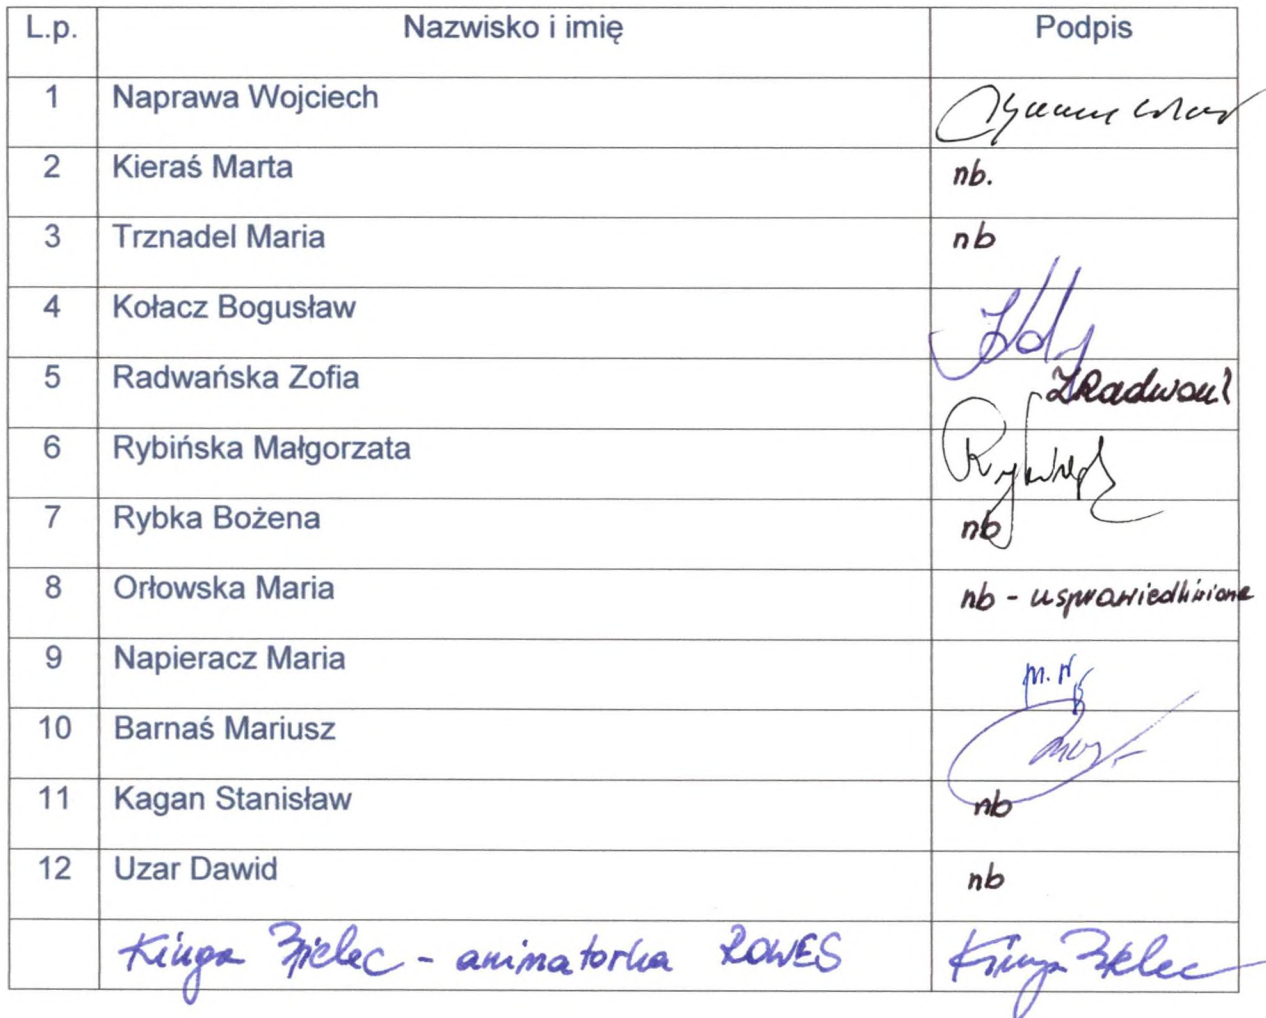 L.p. Nazwisko i imię Podpis
1 Naprawa Wojciech
2 Kieraś Marta nb.
3 Trznadel Maria nb
4 Kołacz Bogusław
5 Radwańska Zofia
6 Rybińska Małgorzata
7 Rybka Bożena nb
8 Orłowska Maria nb - usprawiedliwione
9 Napieracz Maria m. N
10 Barnaś Mariusz
11 Kagan Stanisław nb
12 Uzar Dawid nb
Kinga Bielec - animatorka ROWES Kinga Bielec